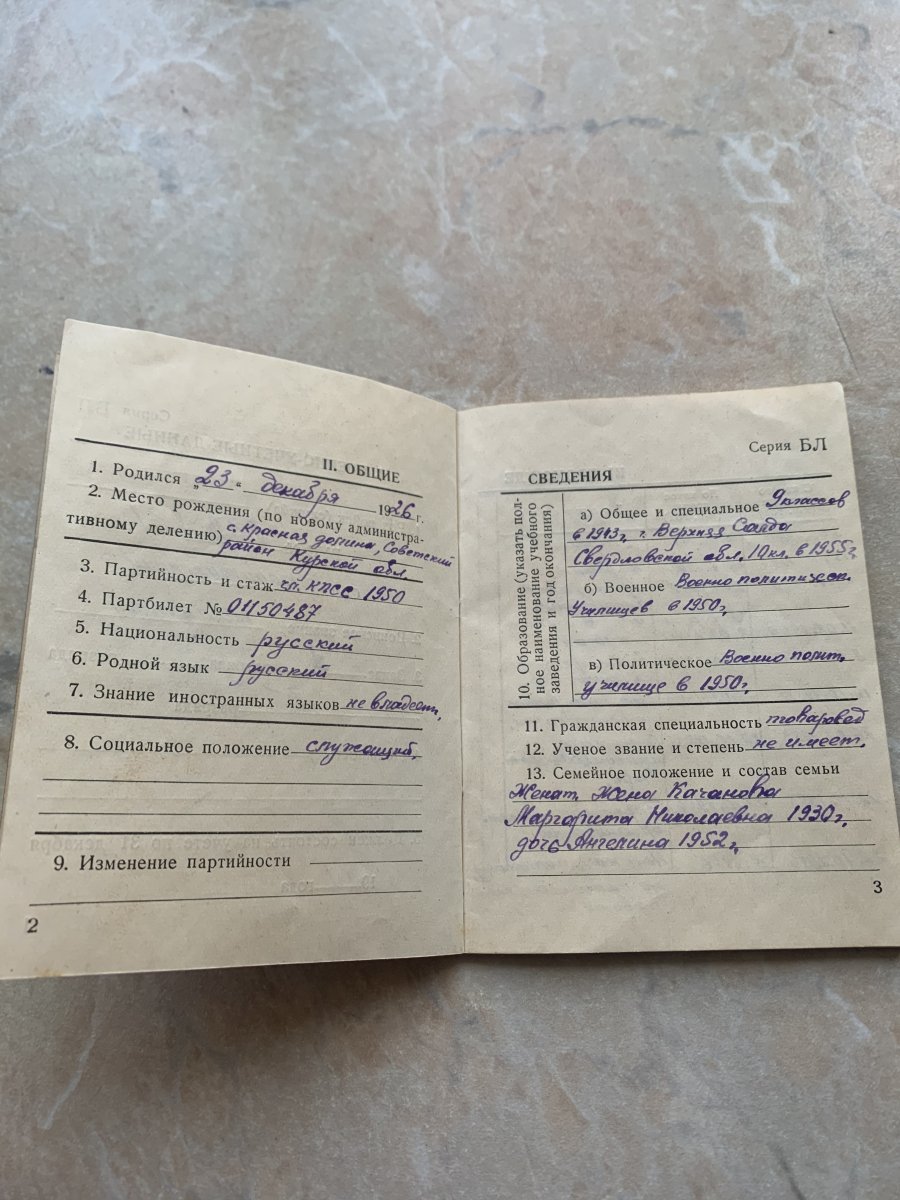 II. ОБЩИЕ
1. Родился „23“ декабря 1926 г.
2. Место рождения (по новому администра-
тивному делению) с. Красная долина, Советский
район Курской обл.
3. Партийность и стаж чл. КПСС 1950
4. Партбилет № 01150487
5. Национальность русский
6. Родной язык русский
7. Знание иностранных языков не владеет,
8. Социальное положение служащий,
9. Изменение партийности
2
Серия БЛ
СВЕДЕНИЯ
10. Образование (указать пол-
ное наименование учебного
заведения и год окончания)
а) Общее и специальное 9 классов
в 1943г, г. Верхняя Салда
Свердловской обл, 10 кл. в 1955г,
б) Военное Военно политическ.
Училищев в 1950г,
в) Политическое Военно полит.
училище в 1950г,
11. Гражданская специальность товаровед
12. Ученое звание и степень не имеет,
13. Семейное положение и состав семьи
Женат, жена Качанова
Маргарита Николаевна 1930г,
дочь Ангелина 1952г,
3